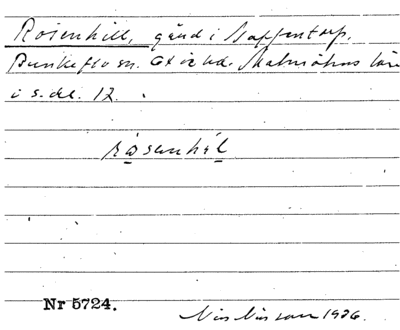 Rosenhill, gård i Naffentorp.
Bunkeflo sn. Oxie hd. Malmöhus län
i s. del. 12.
råsenhil
Nr 5724.
Nils Nilsson 1926.